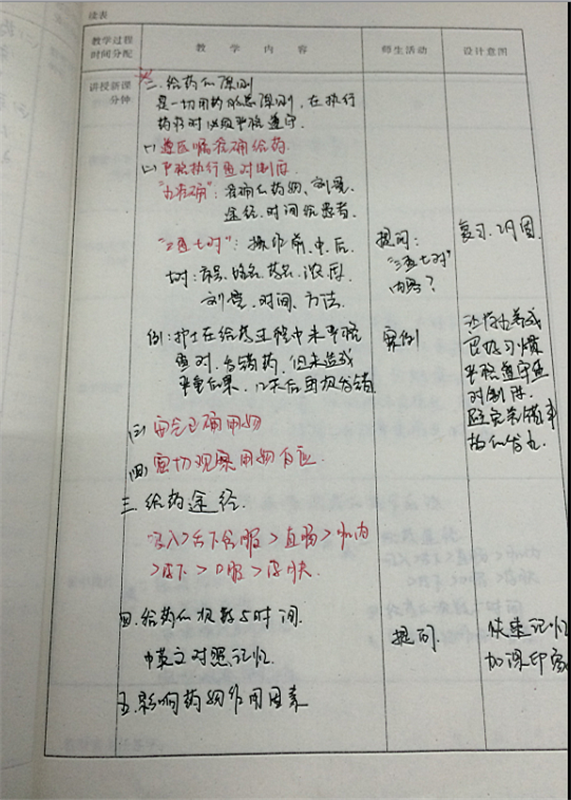 续表
教学过程
时间分配
教 学 内 容
师生活动
设计意图
讲授新课
分钟
二.给药的原则
是一切用药的总原则,在执行
药疗时必须严格遵守.
(一)遵医嘱准确给药.
(二)严格执行查对制度
"五准确":准确的药物、剂量、
途径、时间给患者.
"三查七对":操作前、中、后.
七对:床号、姓名、药名、浓度、
剂量、时间、方法.
例:护士在给药过程中未严格
查对,发错药,但未造成
严重后果,
提问:
"三查七对"
内容?
案例
复习、巩固.
良好习惯
严格遵守查
对制度.
(三)安全正确用药
(四)密切观察用药反应.
三.给药途径.
吸入>舌下含服>直肠>肌内
>皮下>口服>皮肤.
四.给药的次数与时间.
中英文对照记忆.
提问.
快速记忆
加深印象
五.影响药物作用因素